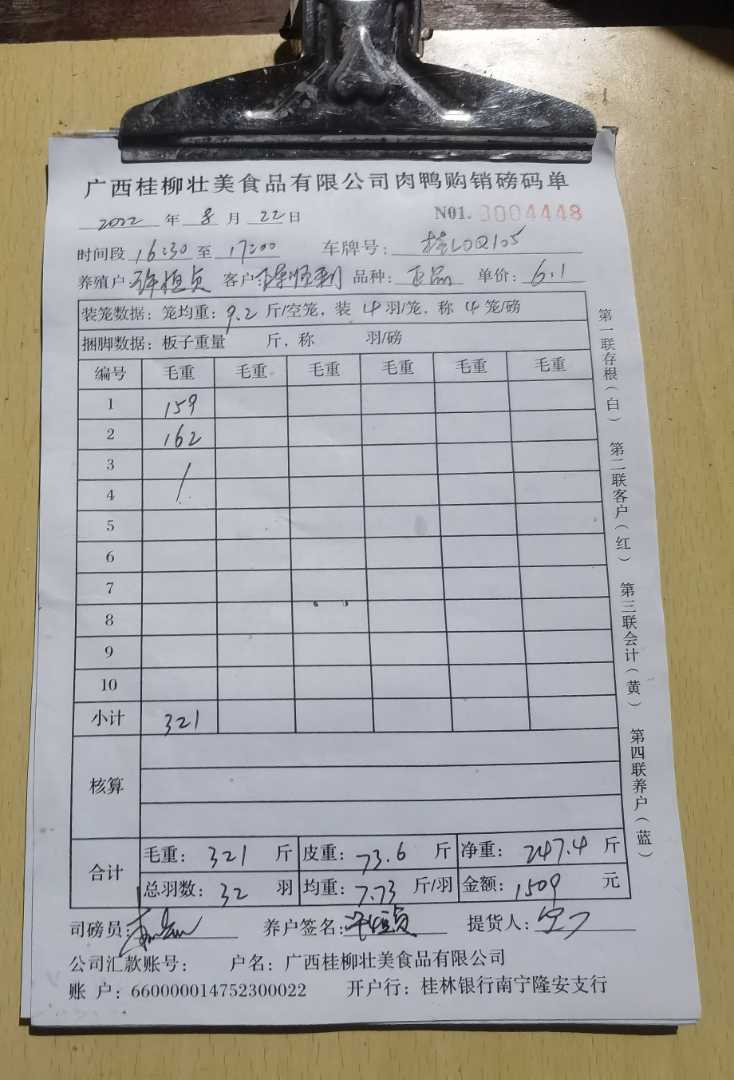 广西桂柳壮美食品有限公司肉鸭购销磅码单
2022 年 8 月 22 日 N01. 0004448
时间段 16:30 至 17:00 车牌号: 桂L0Q105
养殖户 许恒贞 客户 顺利 品种: 正品 单价: 6.1
装笼数据: 笼均重: 9.2 斤/空笼, 装 4 羽/笼, 称 4 笼/磅
捆脚数据: 板子重量 斤, 称 羽/磅
编号 毛重 毛重 毛重 毛重 毛重 毛重
1 159
2 162
3 /
4
5
6
7
8
9
10
小计 321
核算
合计 毛重: 321 斤 皮重: 73.6 斤 净重: 247.4 斤
总羽数: 32 羽 均重: 7.73 斤/羽 金额: 1509 元
司磅员: 养户签名: 许恒贞 提货人:
公司汇款账号: 户名: 广西桂柳壮美食品有限公司
账 户: 660000014752300022 开户行: 桂林银行南宁隆安支行
第一联存根(白) 第二联客户(红) 第三联会计(黄) 第四联养户(蓝)